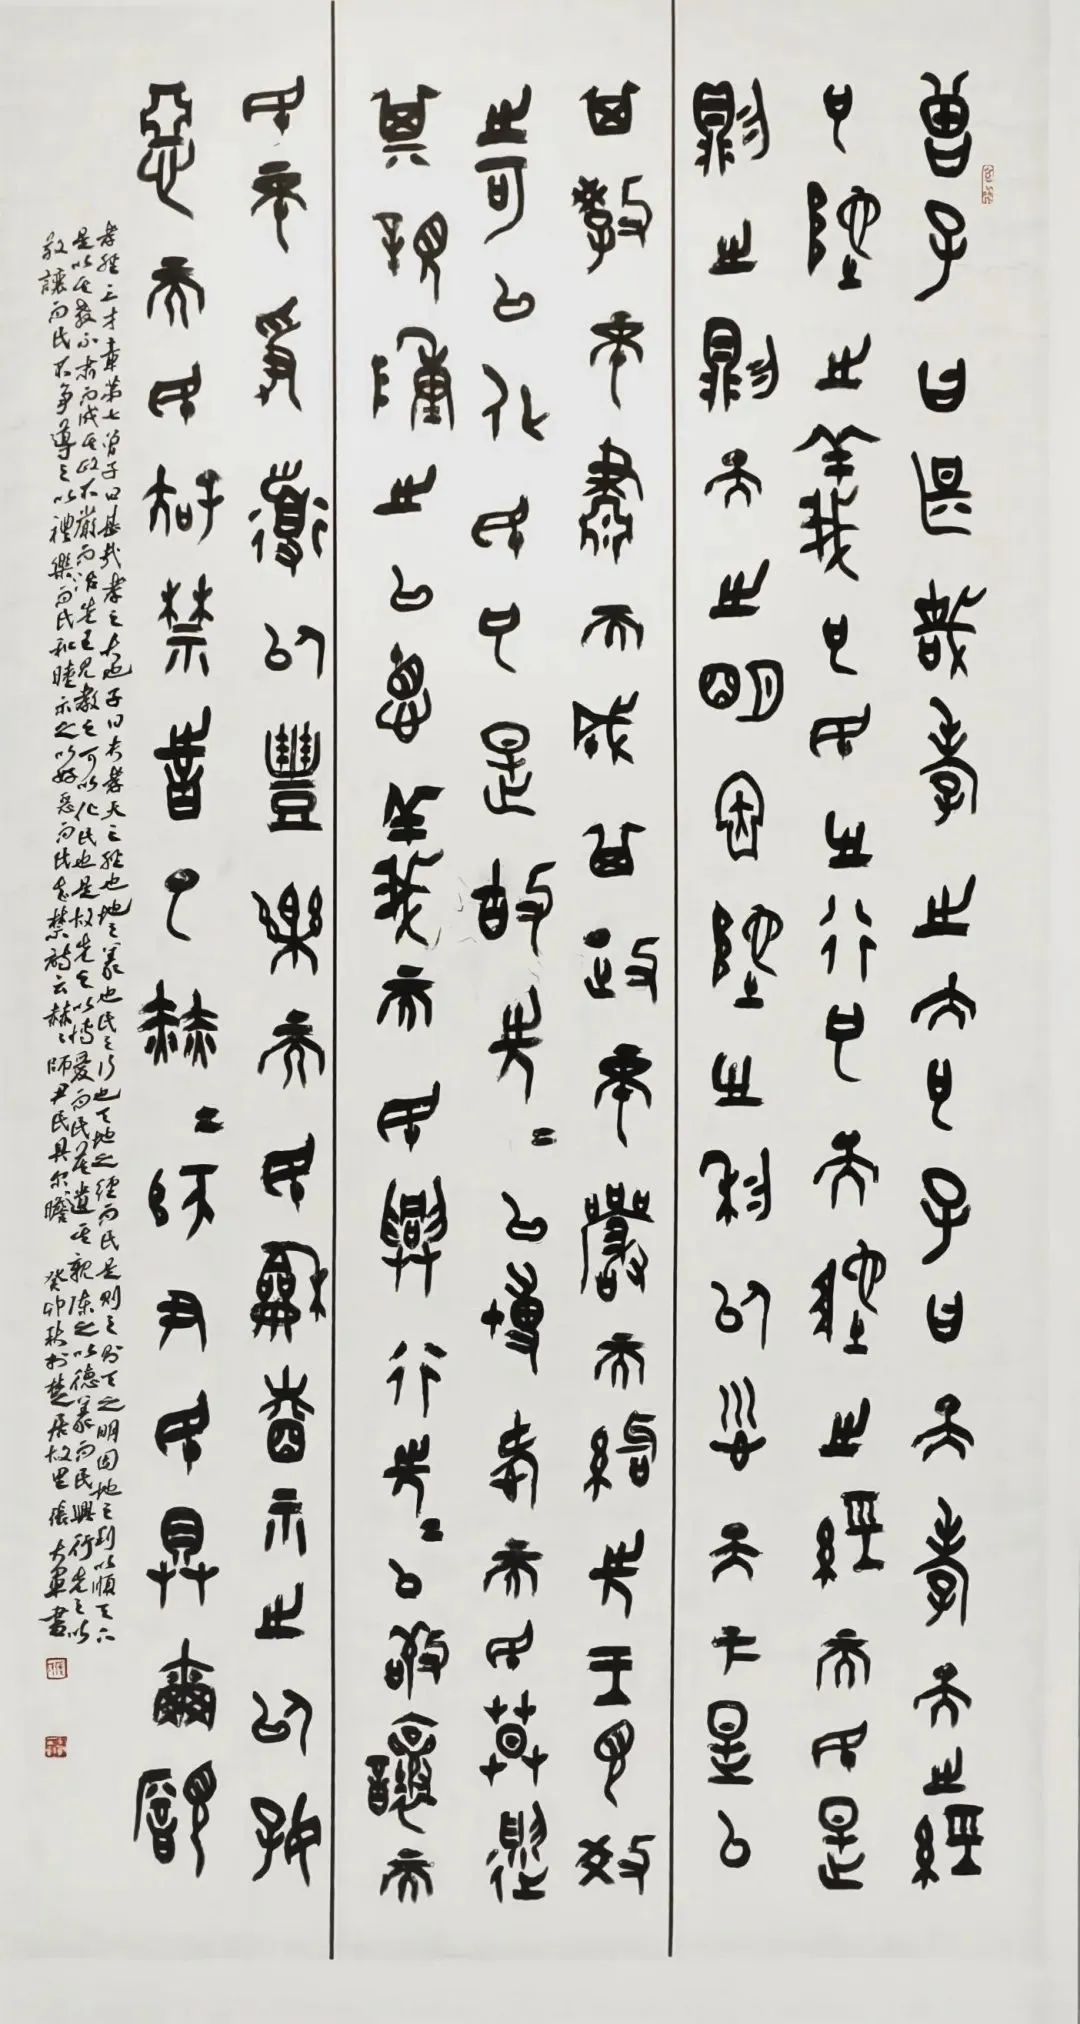 曾子曰甚哉孝之大也子曰夫孝天之經
也地之義也民之行也天地之經而民是
則之則天之明因地之利以順天下是以
其教不肅而成其政不嚴而治先王見教
之可以化民也是故先之以博愛而民莫遺
其親陳之以德義而民興行先之以敬讓而
民不爭導以禮樂而民和睦示之以好
惡而民知禁詩云赫〻師尹民具爾瞻
孝經三才章第七曾子曰甚哉孝之大也子曰夫孝天之經也地之義也民之行也天地之經而民是則之則天之明因地之利以順天下
是以其教不肅而成其政不嚴而治先王見教之可以化民也是故先之以博愛而民莫遺其親陳之以德義而民興行先之以
敬讓而民不爭導之以禮樂而民和睦示之以好惡而民知禁詩云赫〻師尹民具爾瞻 癸卯秋於楚居故里張大軍書